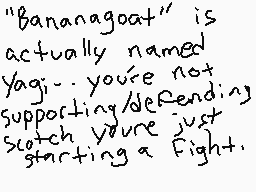 "Bananagoat" is
actually named
Yagi... you're not
supporting/defending
scotch you're just
starting a fight.